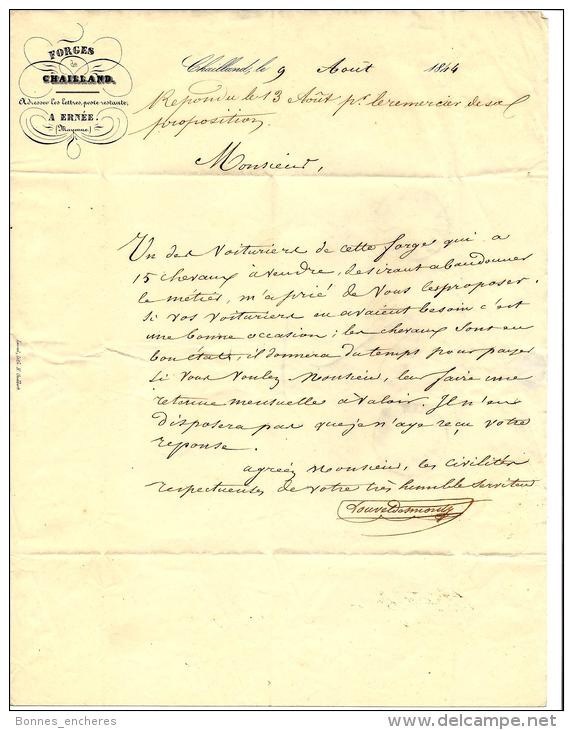 FORGES
de
CHAILLAND.
Adresser les lettres, poste restante,
A ERNÉE.
(Mayenne)
Chailland, le 9 Août 1844
Repondu le 13 Août pr. le remercier de sa
proposition.
Monsieur,
Un des Voituriers de cette forge qui a
15 chevaux à vendre, desirant abandonner
le métier, m'a prié de Vous les proposer.
Si vos voituriers en avaient besoin c'est
une bonne occasion ; les chevaux sont en
bon état, il donnera du temps pour payer
Si Vous Voulez Monsieur, leur faire une
retenue mensuelle à valoir. Il n'en
disposera pas que je n'aye reçu votre
reponse.
agréez Monsieur, les civilités
respectueuses de votre très humble Serviteur
Bonnes_encheres
delcampe.net